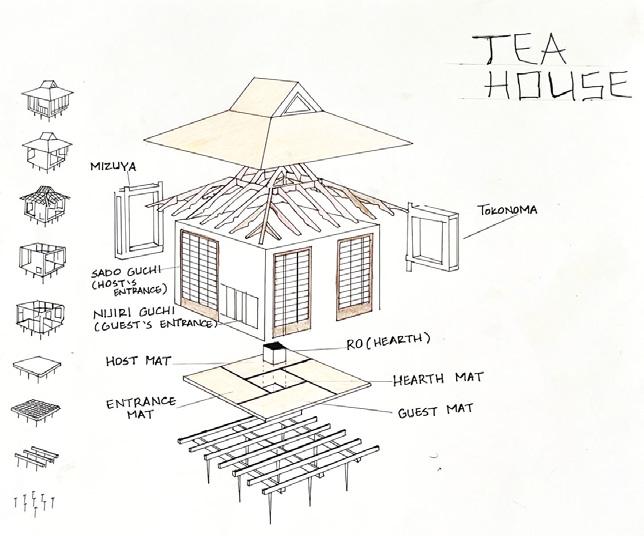 TEA
HOUSE
MIZUYA
TOKONOMA
SADO GUCHI
(HOST'S
ENTRANCE)
NIJIRI GUCHI
(GUEST'S ENTRANCE)
RO (HEARTH)
HOST MAT
HEARTH MAT
ENTRANCE
MAT
GUEST MAT